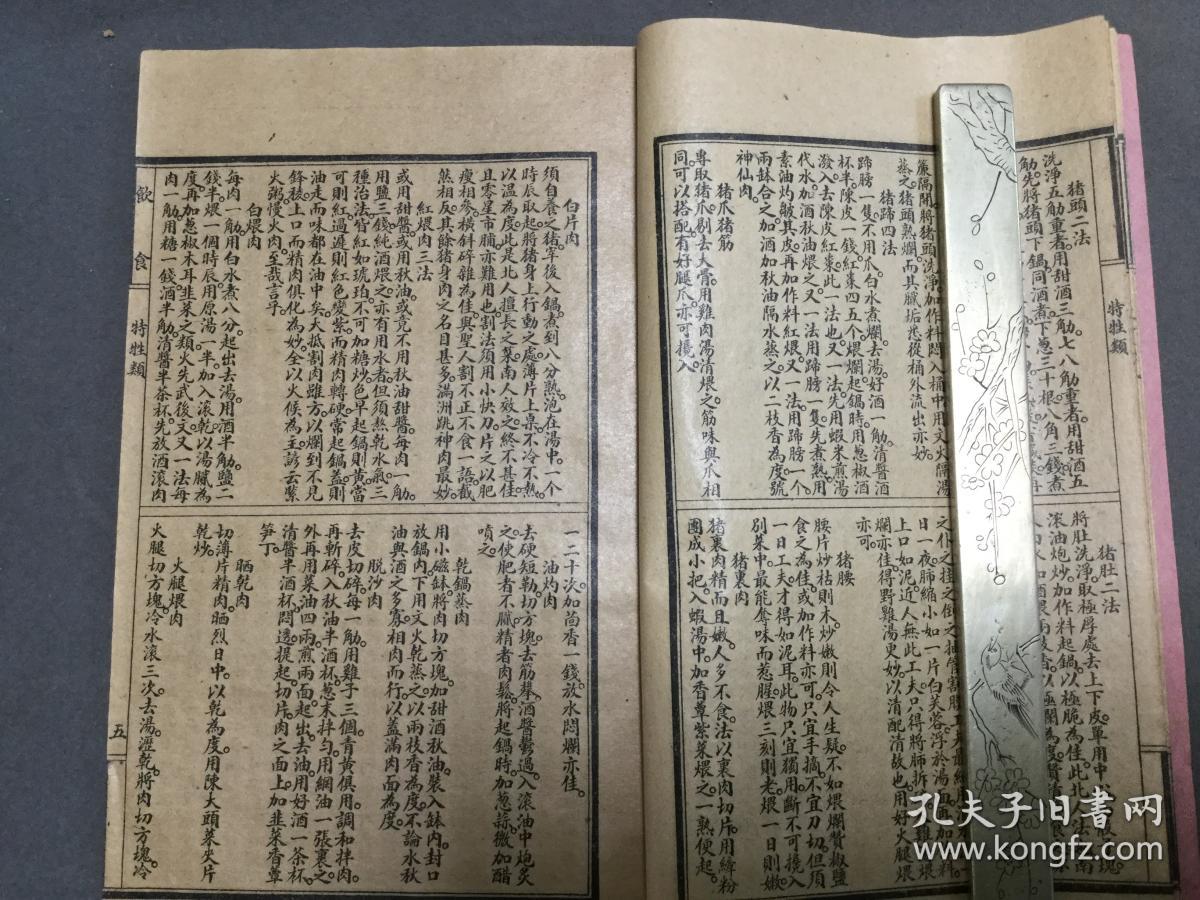 特牲類
猪頭二法
洗淨五觔重者。用甜酒三觔。七八觔重者。用甜酒五
觔。先將猪頭下鍋同酒煮。下葱三十根。八角三錢。煮
簾隔開。將猪頭洗淨。加作料悶入桶中。用文火隔湯
蒸之。猪頭熟爛。而其膩垢悉從桶外流出。亦妙。
猪蹄四法
蹄膀一隻。不用爪。白水煮爛。去湯。好酒一觔。清醬酒
杯半。陳皮一錢。紅棗四五个。煨爛。起鍋時。用葱椒酒
潑入。去陳皮紅棗。此一法也。又一法。先用蝦米煎湯
代水。加酒秋油煨之。又一法。用蹄膀一隻。先煮熟。用
素油灼皺其皮。再加作料紅煨。又一法。用蹄膀一个。
兩缽合之。加酒加秋油。隔水蒸之。以二枝香為度。號
神仙肉。
猪爪猪筋
專取猪爪。剔去大骨。用雞肉湯清煨之。筋味與爪相
同。可以搭配。有好腿爪。亦可攙入。
猪肚二法
將肚洗淨。取極厚處。去上下皮。單用中
滾油炮炒。加作料起鍋。以極脆為佳。此北
日一夜。肺縮小如一片白芙蓉。浮於湯
上口如泥。近人無此工夫。只得將肺拆
爛亦佳。得野雞湯更妙。以清配清故也。用好火腿煨
亦可。
猪腰
腰片炒枯則木。炒嫩則令人生疑。不如煨爛。蘸椒鹽
食之為佳。或加作料亦可。只宜手摘。不宜刀切。但須
一日工夫。才得如泥耳。此物只宜獨用。斷不可攙入
別菜中。最能奪味而惹腥。煨三刻則老。煨一日則嫩。
猪裏肉
猪裏肉。精而且嫩。人多不食。法以裏肉切片。用縴粉
團成小把。入蝦湯中。加香蕈紫菜煨之。一熟便起。
白片肉
須自養之猪。宰後入鍋。煮到八分熟。泡在湯中一个
時辰。取起。將猪身上行動之處。薄片上桌。不冷不熱。
以溫為度。此是北人擅長之菜。南人效之。終不甚佳。
且零星市脯。亦難用也。割法須用小快刀片之。以肥
瘦相參。橫斜碎雜為佳。與聖人割不正不食一語。截
然相反。其餘猪身。肉之名目甚多。滿洲跳神肉最妙。
紅煨肉三法
或用甜醬。或用秋油。或竟不用秋油甜醬。每肉一觔。
用鹽三錢。純酒煨之。亦有用水者。但須熬乾水氣。三
種治法。皆紅如琥珀。不可加糖炒色。早起鍋則黃。當
可則紅。過遲則紅色變紫。而精肉轉硬。常起鍋蓋。則
油走而味都在油中矣。大抵割肉雖方。以爛到不見
鋒稜。上口而精肉俱化為妙。全以火候為主。諺云。緊
火粥。慢火肉。至哉言乎。
白煨肉
每肉一觔。用白水煮八分。起出去湯。用酒半觔。鹽二
錢半。煨一個時辰。用原湯一半。加入滾乾。以湯膩為
度。再加葱椒木耳韭菜之類。火先武後文。又一法。每
肉一觔。用糖一錢。酒半觔。清醬半茶杯。先放酒滾肉
飲食
特牲類
一二十次。加茴香一錢。放水悶爛亦佳。
油灼肉
去硬短勒。切方塊。去筋拏。酒醬鬱過。入滾油中炮炙
之。使肥者不膩。精者肉鬆。將起鍋時。加葱蒜。微加醋
噴之。
乾鍋蒸肉
用小磁缽。將肉切方塊。加甜酒秋油。裝入缽內。封口
放鍋內。下用文火乾蒸之。以兩枝香為度。不論水秋
油與酒之多寡。相肉而行。以蓋滿肉面為度。
脫沙肉
去皮切碎。每一觔用雞子三個。青黃俱用。調和拌肉。
再斬碎。入秋油半酒杯。葱末拌勻。用網油一張裹之。
外再用菜油四兩。煎兩面。起出去油。用好酒一茶杯。
清醬半酒杯。悶透。提起切片。肉之面上。加韭菜香蕈
笋丁。
晒乾肉
切薄片精肉。晒烈日中。以乾為度。用陳大頭菜夾片
乾炒。
火腿煨肉
火腿切方塊。冷水滾三次。去湯瀝乾。將肉切方塊。冷
五
孔夫子旧書网
www.kongfz.com